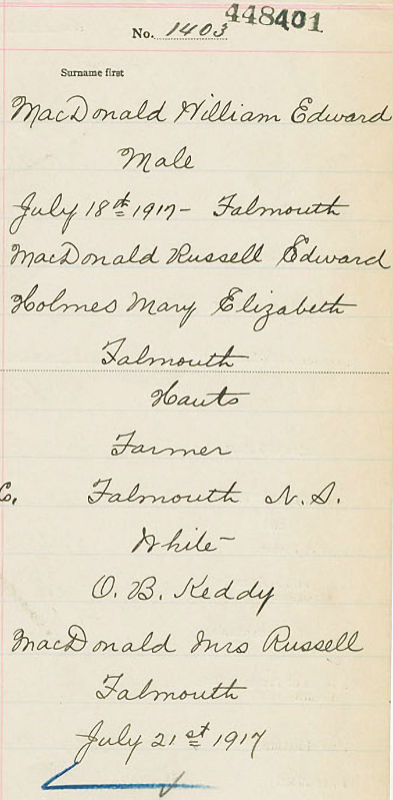 448401
No. 1403
Surname first
MacDonald William Edward
Male
July 18th 1917 - Falmouth
MacDonald Russell Edward
Holmes Mary Elizabeth
Falmouth
Hants
Farmer
Co. Falmouth N.S.
White
O. B. Keddy
MacDonald Mrs Russell
Falmouth
July 21st 1917